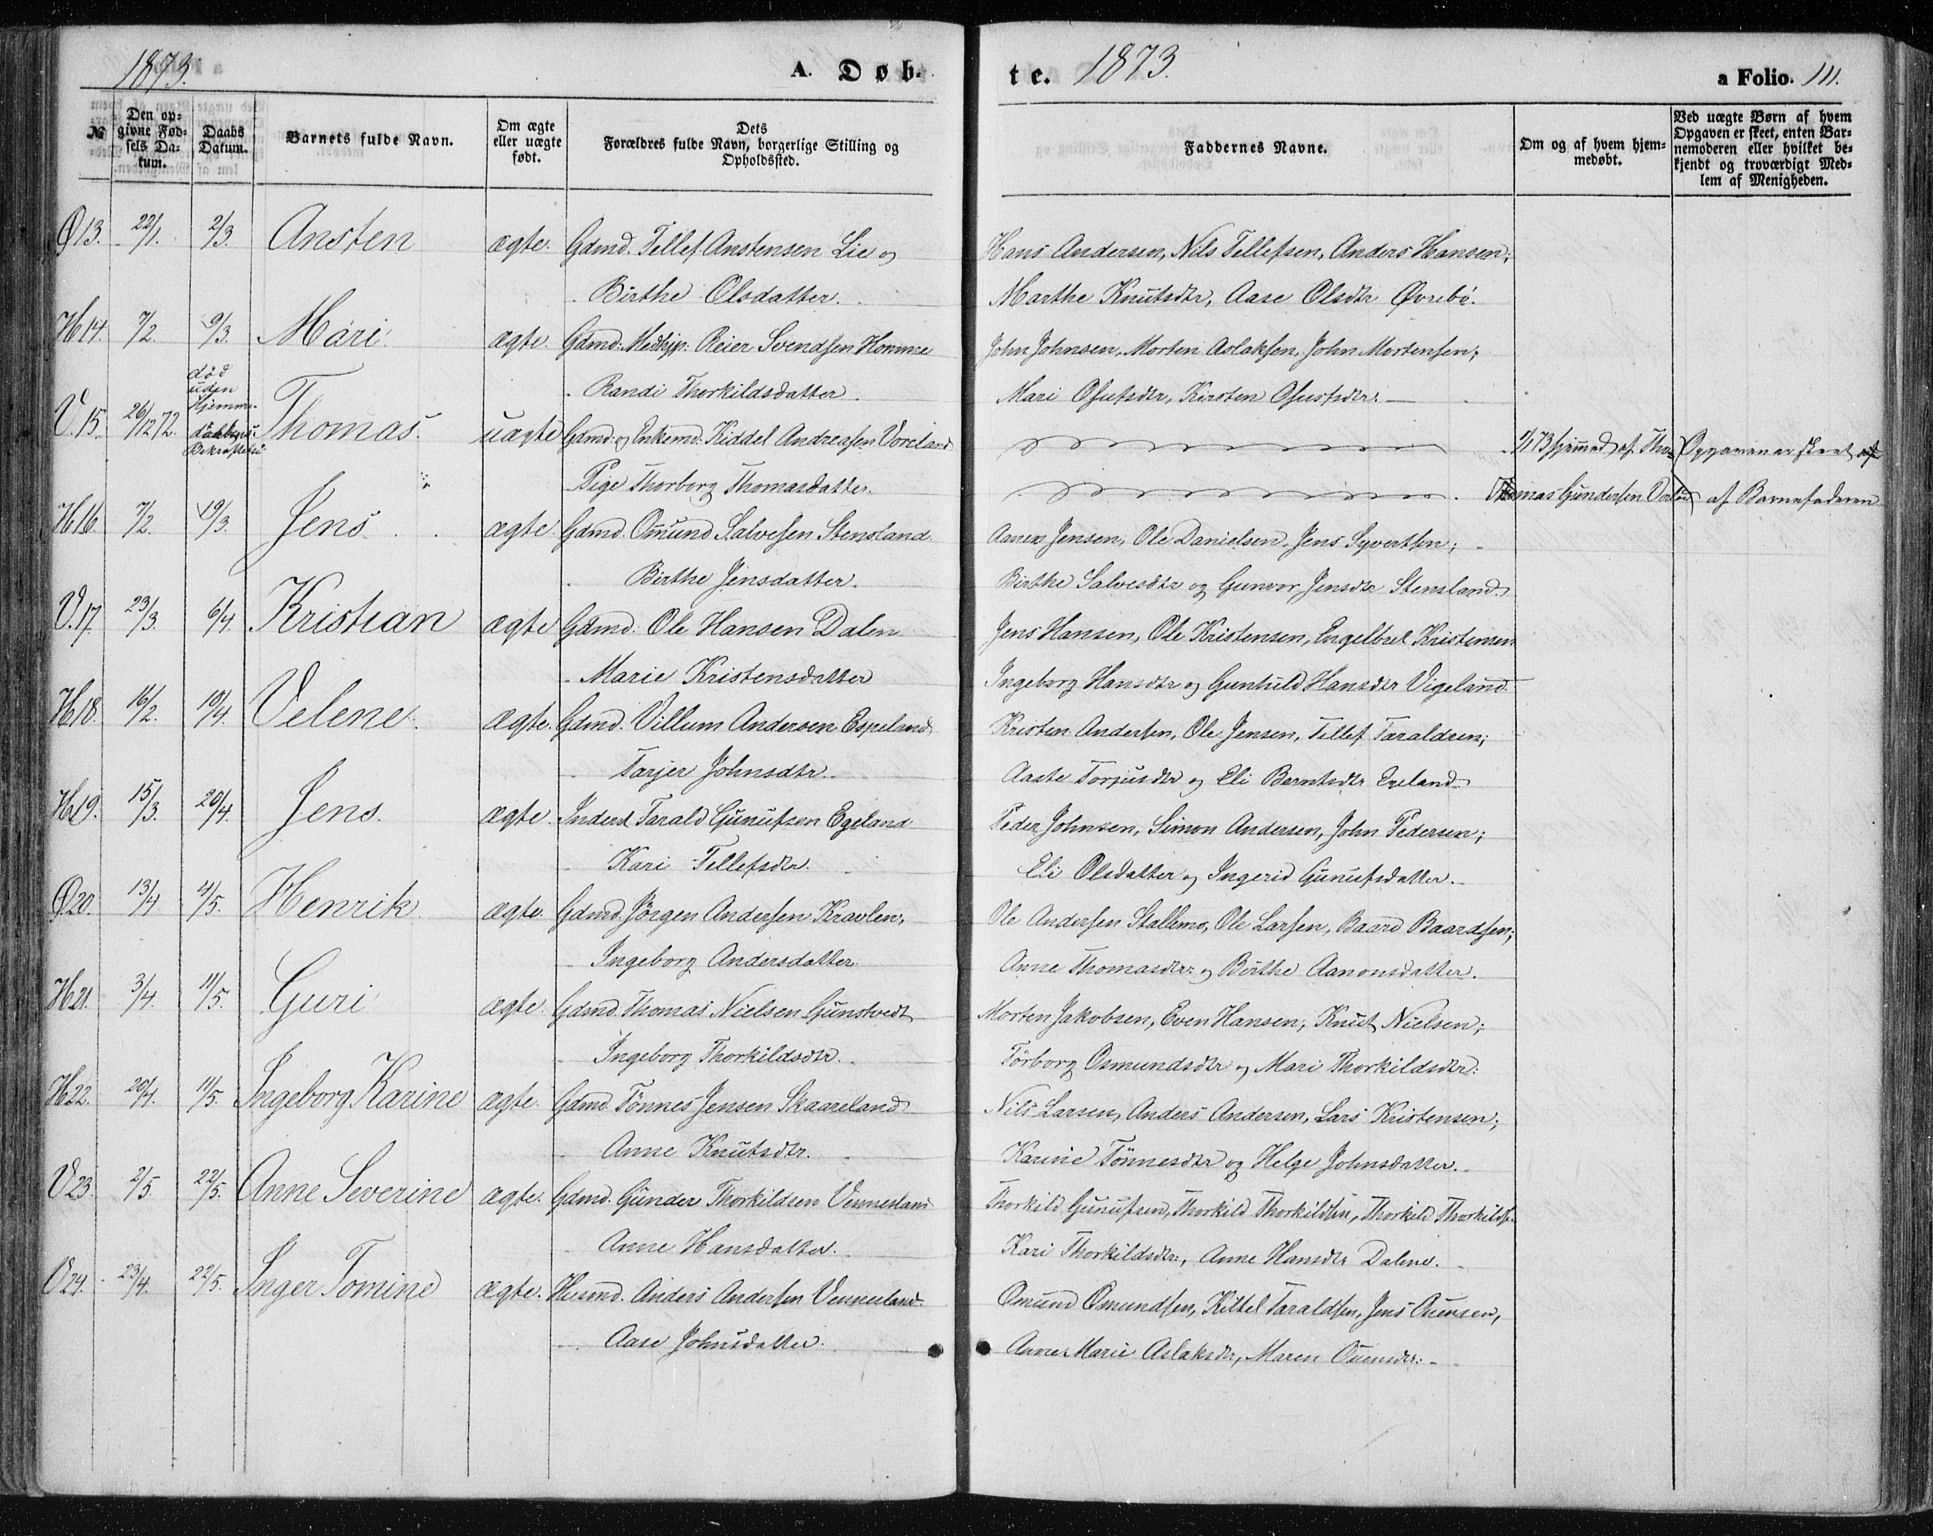 1873. A. Døb-
te. 1873. a Folio. 111.
№ Den opgivne Fødsels Datum. Daabs Datum. Barnets fulde Navn. Om ægte eller uægte født. Dets Forældres fulde Navn, borgerlige Stilling og Opholdssted. Faddernes Navne. Om og af hvem hjemmedøbt. Ved uægte Børn af hvem Opgaven er skeet, enten Barnemoderen eller hvilket bekjendt og troværdigt Medlem af Menigheden.
Ø13. 22/1. 2/3. Ansten ægte. Gdmd. Tellef Anstensen Lie og Hans Andersen, Nils Tellefsen, Anders Hansen;
Birthe Olsdatter. Marthe Knutsdtr, Aase Olsdtr Øvrebö.
H14. 7/2. 9/3. Mari ægte. Gdmd. Medhjp. Reier Svendsen Homme John Johnsen, Morten Aslaksen, John Mortensen;
Randi Thorkildsdatter. Mari Osufsdtr, Kirsten Osufsdtr.
V.15. 26/12 72. død uden Hjemmedaabens Bekræftelse Thomas. uægte Gdmd. og Enkemd. Kiddel Andreasen Voreland 1/1 73 hjemmed. af Tho- Opgaven er skeet af
Pige Thorborg Thomasdatter. Thomas Gundersen af Barnefaderen
H16. 7/2. 19/3. Jens ægte. Gdmd. Omund Salvesen Stensland Jensen, Ole Danielsen, Jens Syvertsen;
Birthe Jensdatter. Birthe Salvesdtr og Gunvor Jensdtr Stensland
V.17. 23/3. 6/4. Kristian ægte Gdmd. Ole Hansen Dalen Jens Hansen, Ole Kristensen, Engelbret Kristensen
Marie Kristensdatter Ingeborg Hansdtr og Gunhild Hansdtr Vigeland
H18. 16/2. 10/4. Velene. ægte. Gdmd. Villum Andersen Espeland Kristen Andersen, Ole Jensen, Tellef Taraldsen;
Tarjer Johnsdtr. Aaste Torjusdtr og Eli Berntsdtr Egeland
H19. 15/3. 20/4. Jens. ægte. Inderst Tarald Gunufsen Egeland Peder Johnsen, Simon Andersen, John Pedersen;
Kari Tellefsdtr. Eli Olsdatter og Ingerid Gunufsdatter.
Ø20. 13/4. 4/5. Henrik ægte. Gdmd. Jörgen Andersen Kravlen, Ole Andersen Stallemo, Ole Larsen, Baard Baardsen;
Ingeborg Andersdatter. Anne Thomasdtr. og Birthe Aanonsdatter.
H21. 3/4. 11/5. Guri ægte. Gdmd. Thomas Nielsen Gunstvedt Morten Jakobsen, Even Hansen, Knut Nielsen;
Ingeborg Thorkildsdtr. Törborg Osmundsdtr og Mari Thorkildsdtr.
H22. 20/4. 11/5. Ingeborg Karine ægte. Gdmd. Tönnes Jensen Skaareland Nils Larsen, Anders Andersen, Lars Kristensen;
Anne Knutsdtr. Karine Tönnesdtr og Helge Johnsdatter.
V23. 2/5. 22/5. Anne Severine ægte. Gdmd. Gunder Thorkildsen Vennesland Thorkild Gunufsen, Thorkild Thorkildsen, Thorkild Thorkilds.
Anne Hansdatter. Kari Thorkildsdtr., Anne Hansdtr Dalene.
V24. 23/4. 22/5. Inger Tomine ægte. Husmd. Anders Andersen Vennesland Omund Omundsen, Kittel Taraldsen, Jens Ouensen,
Aase Johnsdatter. Anne Marie Aslaksdtr, Maren Ouensdtr.